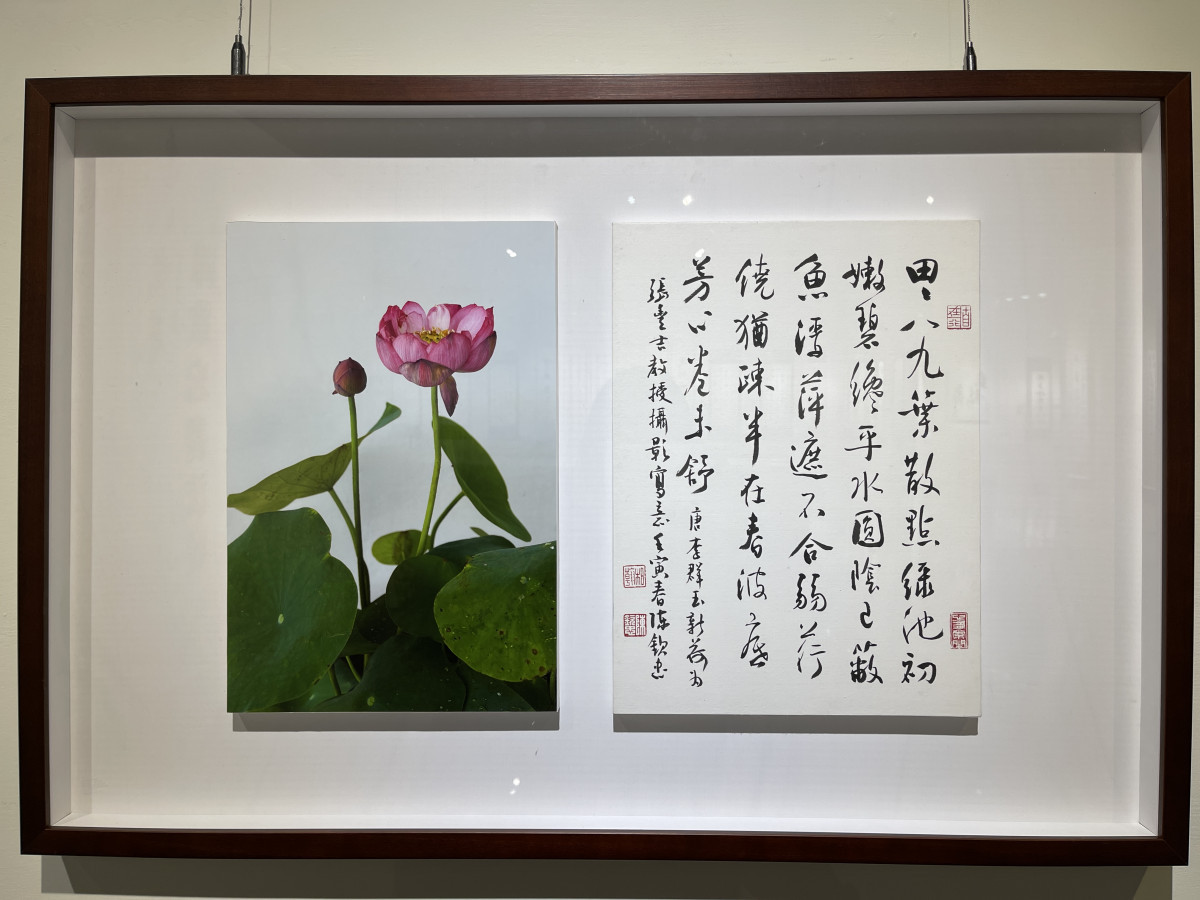 田〻八九葉散點綠池初
嫩碧纔平水圓陰已蔽
魚浮萍遮不合弱荇
繞猶疎半在春波底
芳心卷未舒 唐李群玉新荷為
張豐吉教授攝影寫意壬寅春陳欽忠